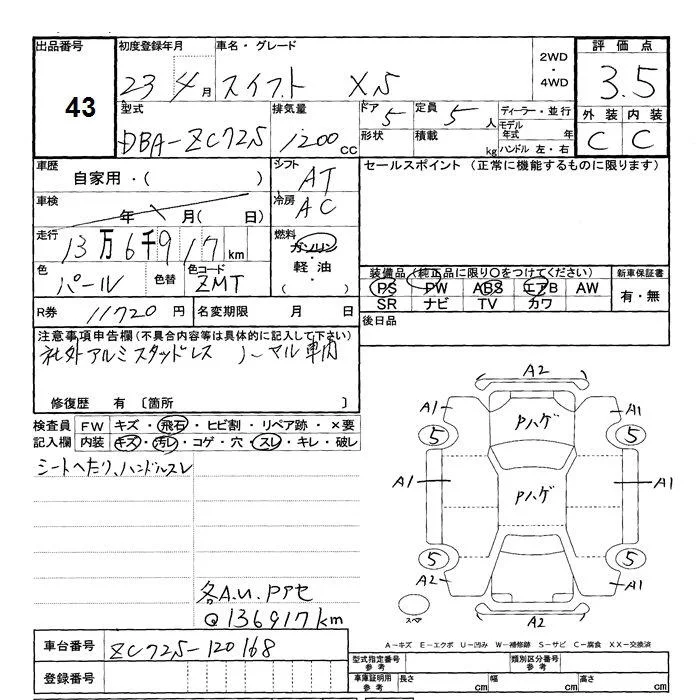 出品番号 初度登録年月 車名・グレード 2WD・4WD 評価点
43 23年4月 スイフト XS 3.5
型式 排気量 ドア 5 定員 5人 ディーラー・並行 外装 内装
DBA-ZC72S 1200cc 形状 積載 kg モデル年式 年 ハンドル 左・右 C C
車歴 自家用・( ) シフト AT セールスポイント (正常に機能するものに限ります)
車検 年 月(日) 冷房 AC
走行 13万6千917km 燃料 ガソリン・軽油・( )
色 パール 色替 色コード ZMT 装備品(純正品に限り○をつけてください) 新車保証書
PS PW ABS エアB AW 有・無
SR ナビ TV カワ
R券 11720円 名変期限 月 日 後日品
注意事項申告欄(不具合内容等は具体的に記入して下さい)
社外アルミスタッドレス ノーマル車内
修復歴 有 〔箇所 〕
検査員 FW キズ・飛石・ヒビ割・リペア跡・×要
記入欄 内装 キズ・汚レ・コゲ・穴・スレ・キレ・破レ
シートヘたり、ハンドルスレ
A2
A1 Pハゲ A1
5 5
A1 Pハゲ A1
5 5
A2 A1
スペア A2
各A.U.Pアセ
Q136917km
A-キズ E-エクボ U-凹み W-補修跡 S-サビ C-腐食 XX-交換済
車台番号 ZC72S-120168
登録番号
型式指定番号 参考 類別区分番号 参考
車庫証明用 参考 長さ cm 幅 cm 高さ cm